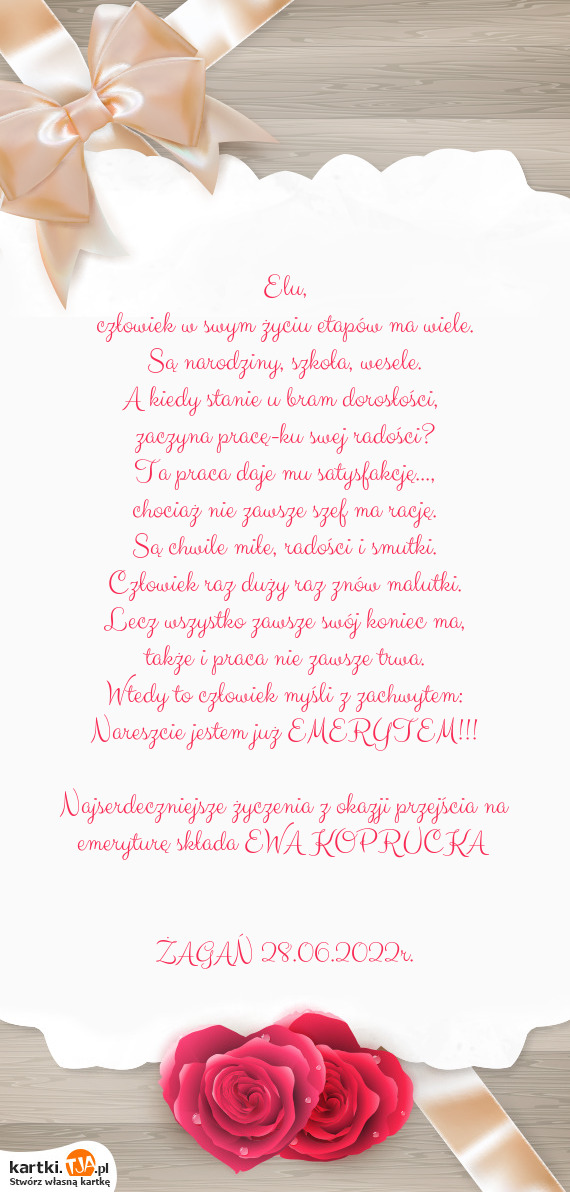 Elu,
człowiek w swym życiu etapów ma wiele.
Są narodziny, szkoła, wesele.
A kiedy stanie u bram dorosłości,
zaczyna pracę-ku swej radości?
Ta praca daje mu satysfakcję...,
chociaż nie zawsze szef ma rację.
Są chwile miłe, radości i smutki.
Człowiek raz duży raz znów malutki.
Lecz wszystko zawsze swój koniec ma,
także i praca nie zawsze trwa.
Wtedy to człowiek myśli z zachwytem:
Nareszcie jestem już EMERYTEM!!!
Najserdeczniejsze życzenia z okazji przejścia na
emeryturę składa EWA KOPRUCKA
ŻAGAŃ 28.06.2022r.
kartki.TJA.pl
Stwórz własną kartkę